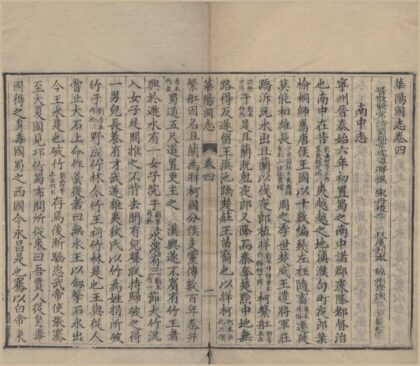 華陽國志卷四
晉散騎常侍蜀郡常璩道將撰
南中志
寧州晉泰始六年初置蜀之南中諸郡庲降都督治
也南中在昔蓋夷越之地滇濮句町夜郎葉
榆桐師嶲唐侯王國以十數編髮左衽隨畜遷徙
莫能相雄長周之季世楚威王遣將軍莊
蹻泝沅水出且蘭以伐夜郎植牂柯繫舡
於是且蘭既克夜郎又降而秦奪楚黔中地無
路得反遂留王滇池蹻楚莊王苗裔也以牂柯
華陽國志 卷四 一
繫舡因名且蘭為牂柯國分侯支黨傳數百年秦并
蜀通五尺道置吏主之漢興遂不賓有竹王者
興於遯水有一女子浣於水濱有三節大竹流
入女子足間推之不肯去聞有兒聲取持歸破之得
一男兒長養有才武遂雄夷狄氏以竹為姓捐所破
竹於野成竹林今竹王祠竹林是也王與從人
嘗止大石上命作羹從者曰無水王以劍擊石水出
今王水是也破竹存焉後漸驕恣武帝使張騫
至大夏國見邛竹蜀布問所從來曰吾賈人從身毒
國得之身毒國蜀之西國今永昌是也騫以白帝東